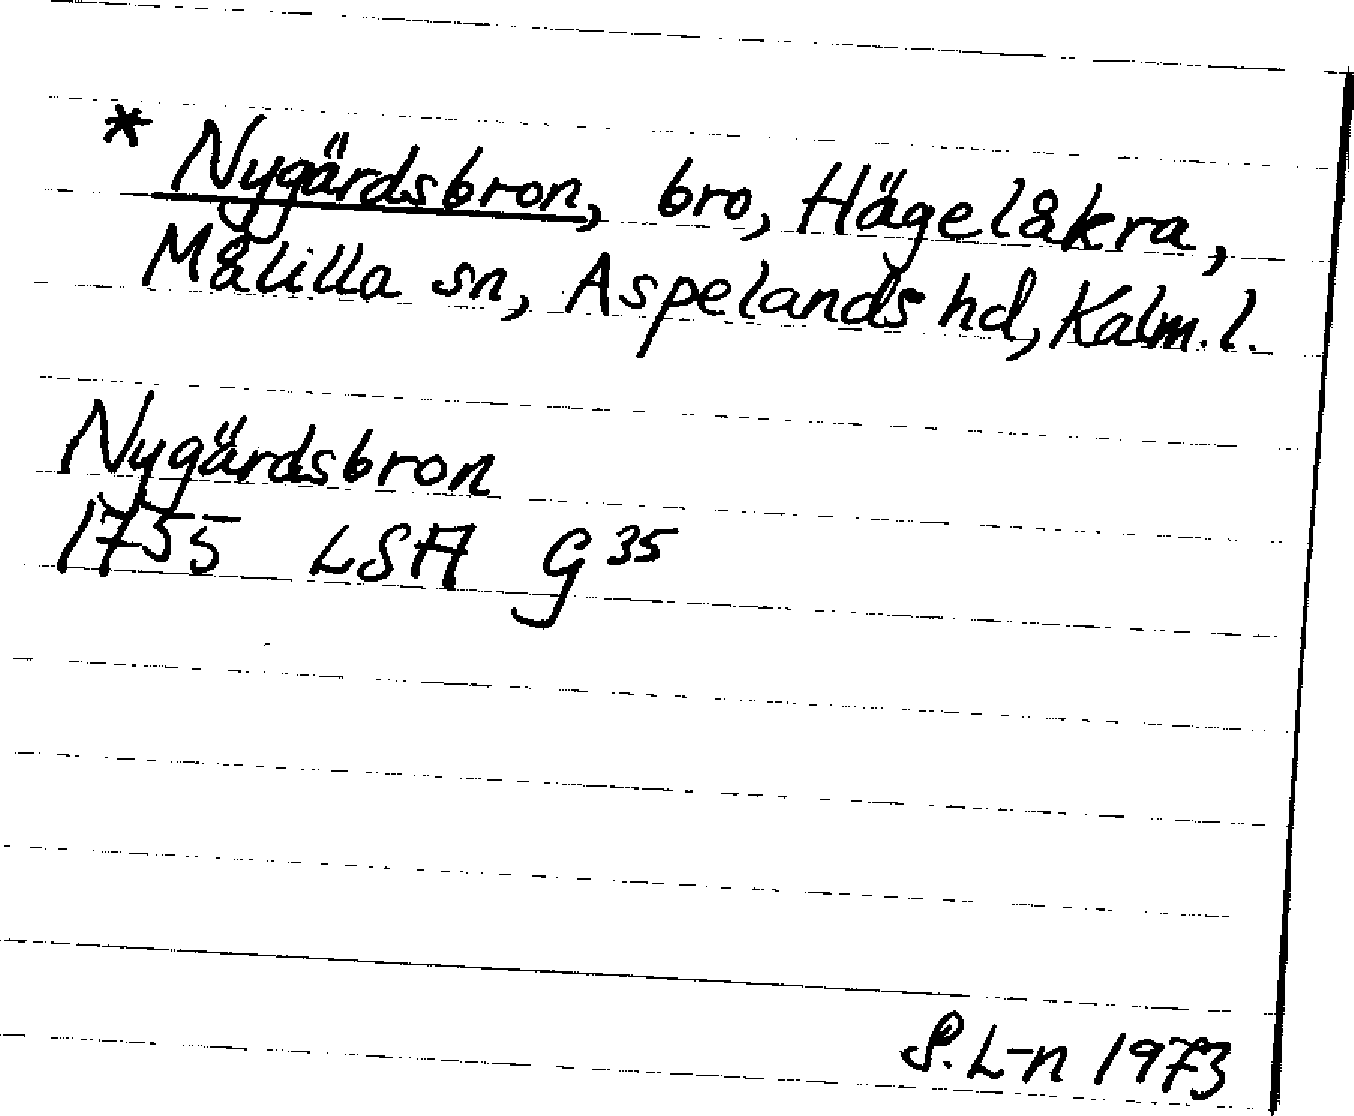 * Nygärdsbron, bro, Hägelåkra,
Målilla sn, Aspelands hd, Kalm.l.
Nygärdsbron
1755 LSA G 35
S.L-n 1973